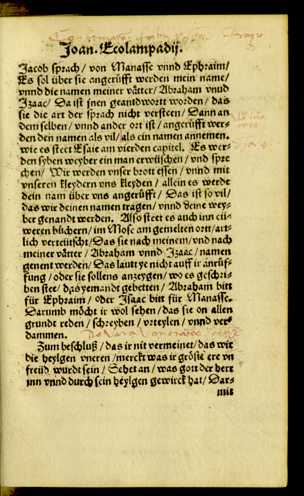 Joan. Ecolampadij.
Jacob sprach/ von Manasse vnnd Ephraim/
Es sol über sie angerüfft werden mein name/
vnnd die namen meiner vätter/ Abraham vnud
Izaac/ Da ist jnen geantdwortt worden/ das
sie die art der sprach nicht versteen/ Dann an
dem selben/ vnnd ander ort ist/ angerüfft wer-
den den namen als vil/ als ein namen annemen.
wie es steet Esaie am vierden capitel. Es wer-
den syben weyber ein man erwüschen/ vnd spre
chen/ Wir werden vnser brott essen/ vnnd mit
vnseren kleydern vns kleyden/ allein es werde
dein nam über vns angerüfft/ Das ist so vil/
das wir deinen namen tragen/ vnnd deine wey-
ber genandt werden. Also steet es auch inn eü-
weren büchern/ im Mose am gemelten ort/ art-
lich verteütscht/ Das sie nach meinem/ vnd nach
meiner vätter/ Abraham vnnd Izaac/ namen
genent werden/ Das lautt ye nicht auff ir anrüf-
fung/ oder sie sollens anzeygen/ wo es geschri-
ben stee/ das yemandt gebetten/ Abraham bitt
für Ephraim/ oder Isaac bitt für Manasse.
Darumb möcht ir wol sehen/ das sie on allen
grundt reden/ schreyben/ vrteylen/ vnnd ver-
dammen.
Zum beschluß/ das ir nit vermeinet/ das wir
die heylgen vneren/ merckt was ir gröste ere vn
freüd wurdt sein/ Sehet an/ was gott der herr
inn vnnd durch sein heylgen gewirckt hat/ Dar-
mit